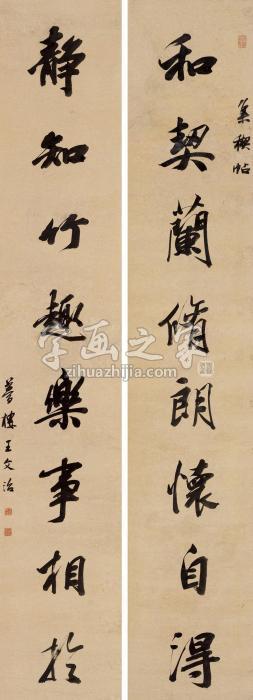 集稧帖
和契蘭脩朗懷自得
静知竹趣樂事相於
夢樓王文治
字画之家
zihuazhijia.com